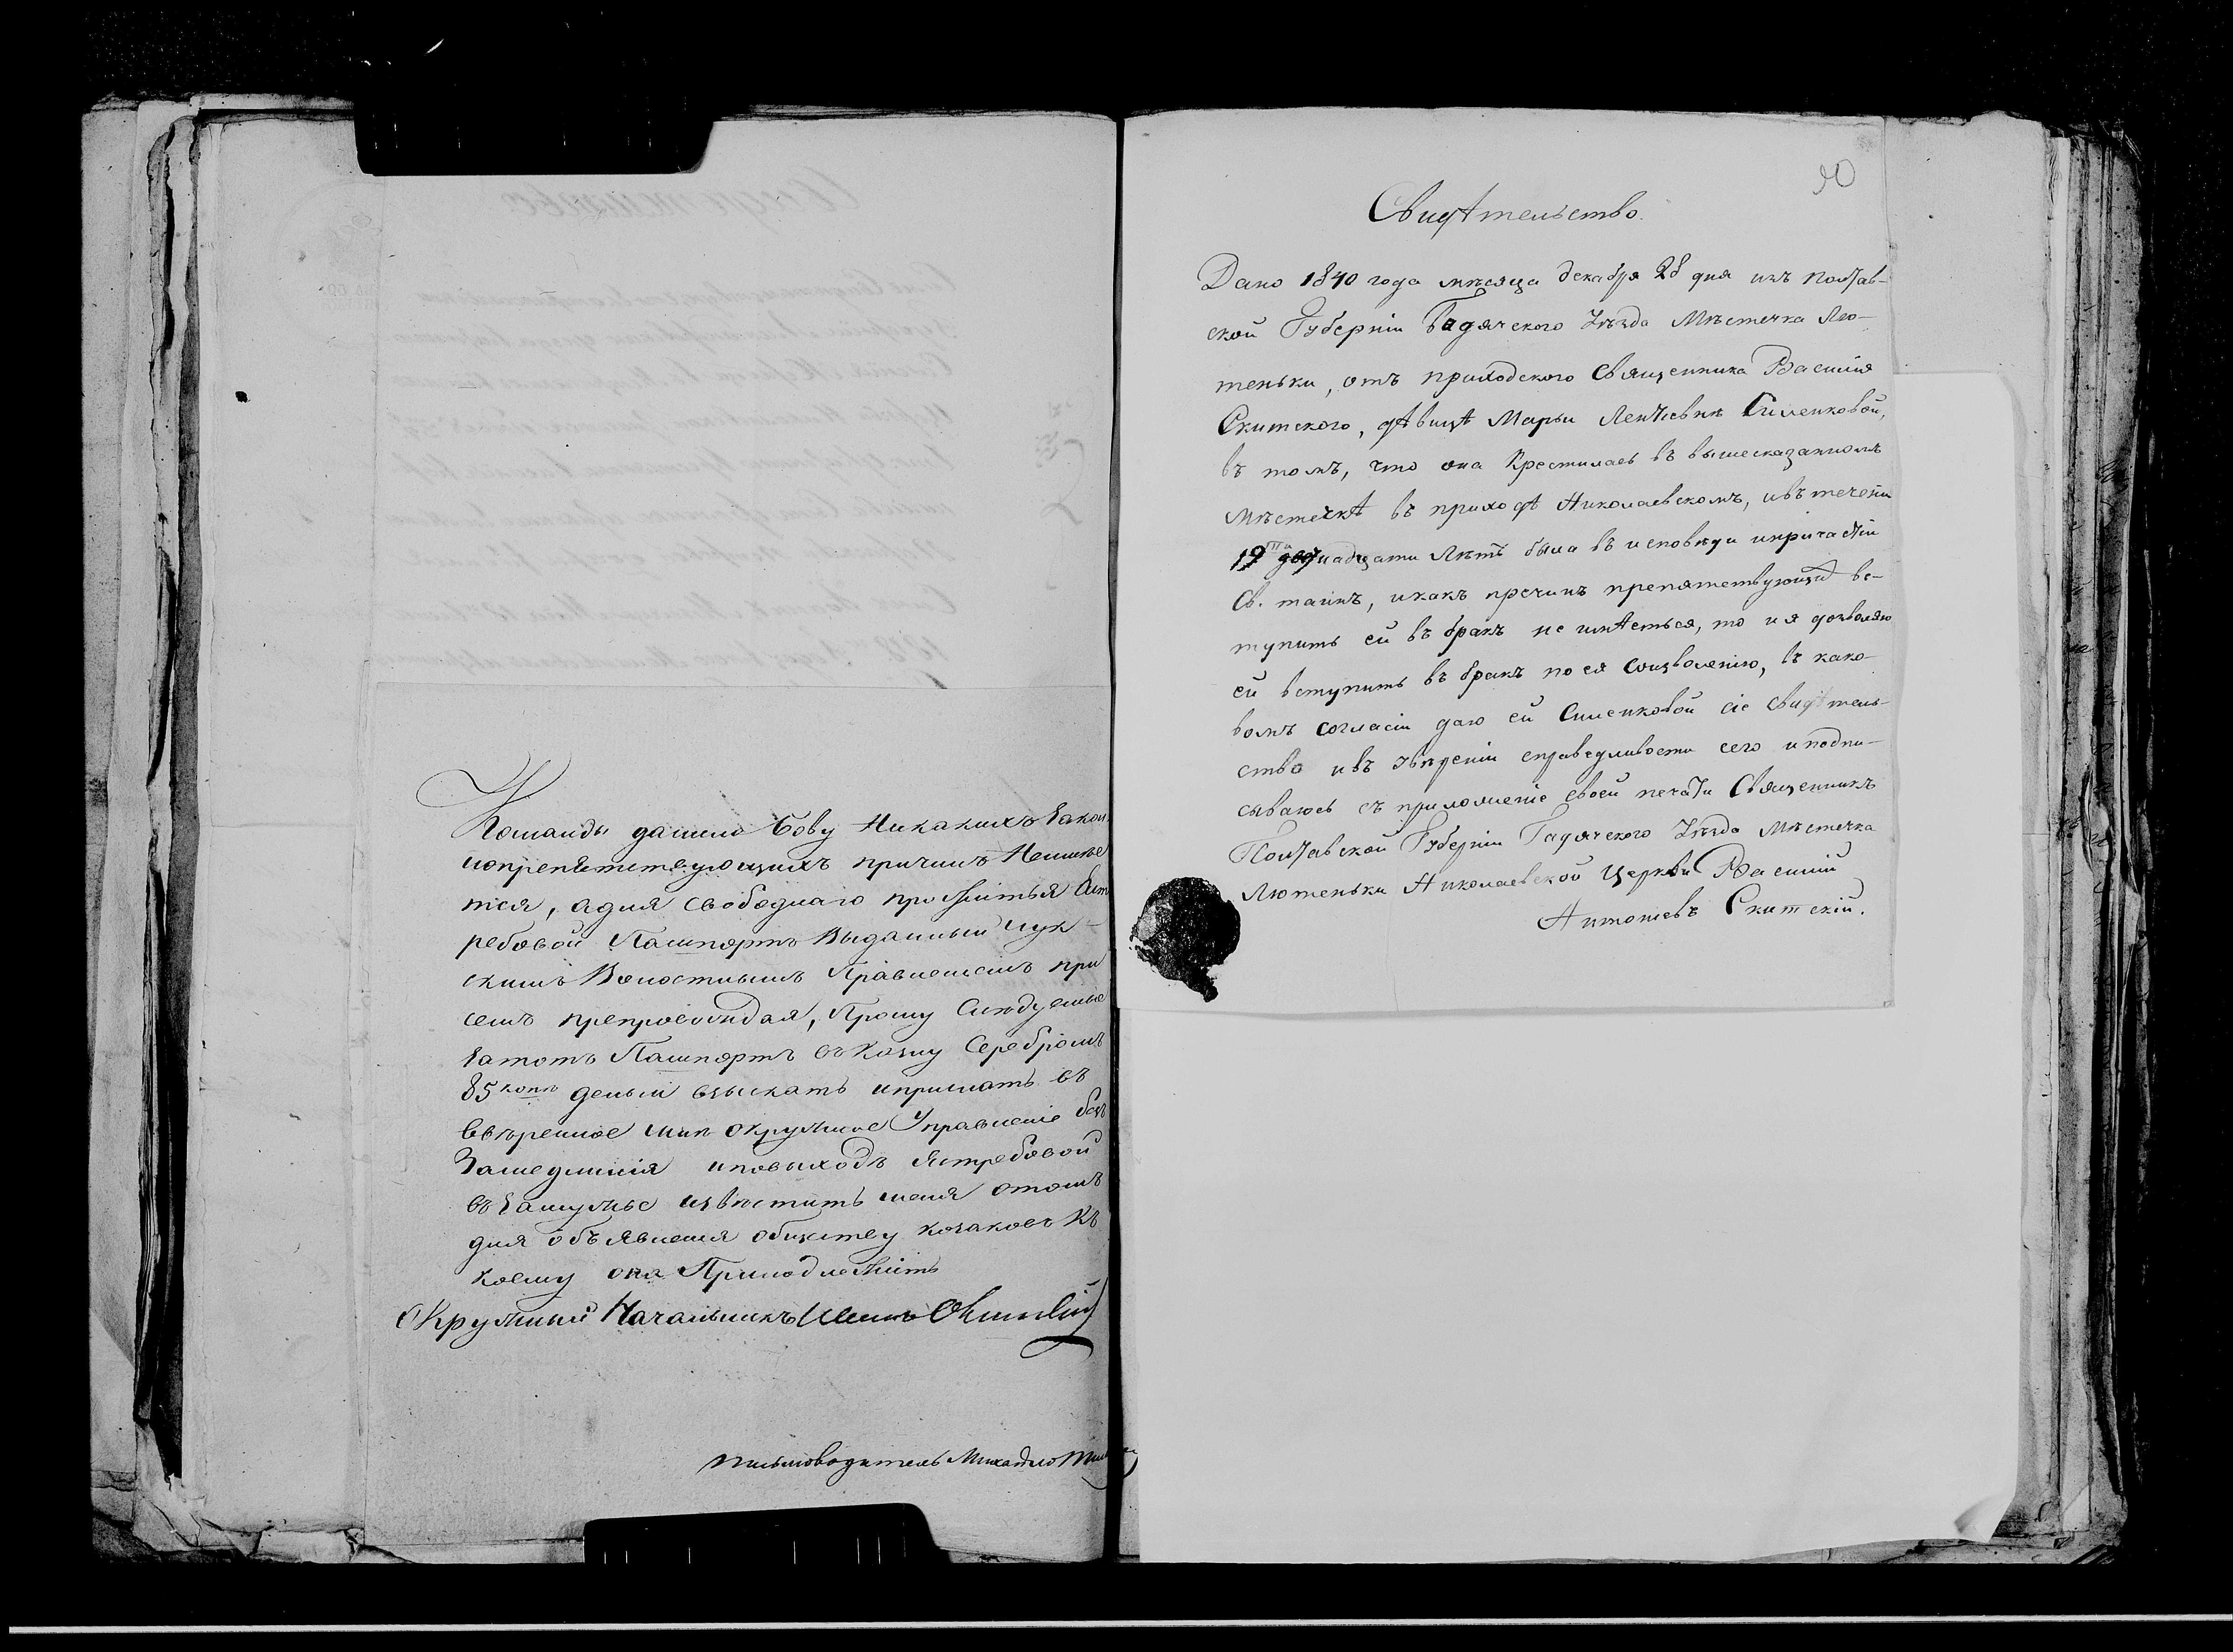 Команды данило Бову Никакихъ закон
нопрепятствующихъ причинъ Неимѣе
тся, адля свободнаго прожитья Яст
ребовой Пашпортъ Выданный
скимъ Волостнымъ Правлениемъ при
семъ препровождая, Прошу Слюдуемые
затотъ Пашпортъ въ Козну Серебромъ
85 копѣ денги взыскать иприслать въ
ввѣренное мнѣ окружное Управленіе безъ
Замедленія иповыходѣ Ястребовой
въ замужье извѣстить меня отомъ
для объявления обществу козаковъ Къ
коему она Принодлежитъ
Окружный Начальникъ
писмоводитель Михайло
90
Свидѣтельство.
Дано 1840 года мѣсяца декабря 28 дня изъ Полтав-
ской Губерніи Гадячского Уѣзда Мѣстечка Лю-
теньки, отъ приходского Священника Василія
Скитского, дѣвицѣ Марьи Леньтіевнѣ Силенковой,
въ томъ, что она Крестилась въ вышесказанномъ
мѣстечкѣ въ приходѣ Николаевскомъ, ивъ течении
19 надцати Лѣтъ была въ исповѣди ипричастіи
Св. таинъ, икакъ пречинъ препятствующи вс-
тупить ей въ бракъ не имѣеться, то и я дозволяю
ей вступить въ бракъ по ея соизволенію, въ како-
вомъ согласіи даю ей Силенковой сіе свидѣтель-
ство ивъ увѣреніи справедливости сего иподпи-
сываюсь съ приложеніе своей печати Священникъ
Полтавской Губерніи Гадячского Уѣзда Мѣстечка
Лютеньки Николаевской Церкви Василій
Антоневъ Скитскій.